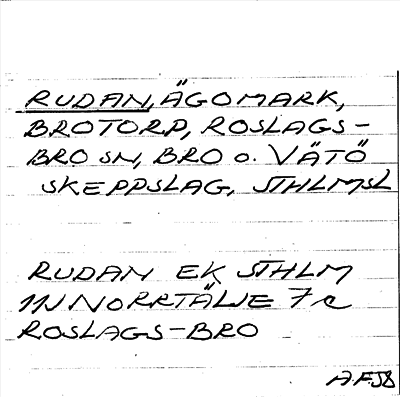 RUDAN, ÄGOMARK,
BROTORP, ROSLAGS-
BRO SN, BRO O. VÄTÖ
SKEPPSLAG, STHLMSL
RUDAN EK STHLM
11J NORRTÄLJE 7c
ROSLAGS-BRO
A.F.58